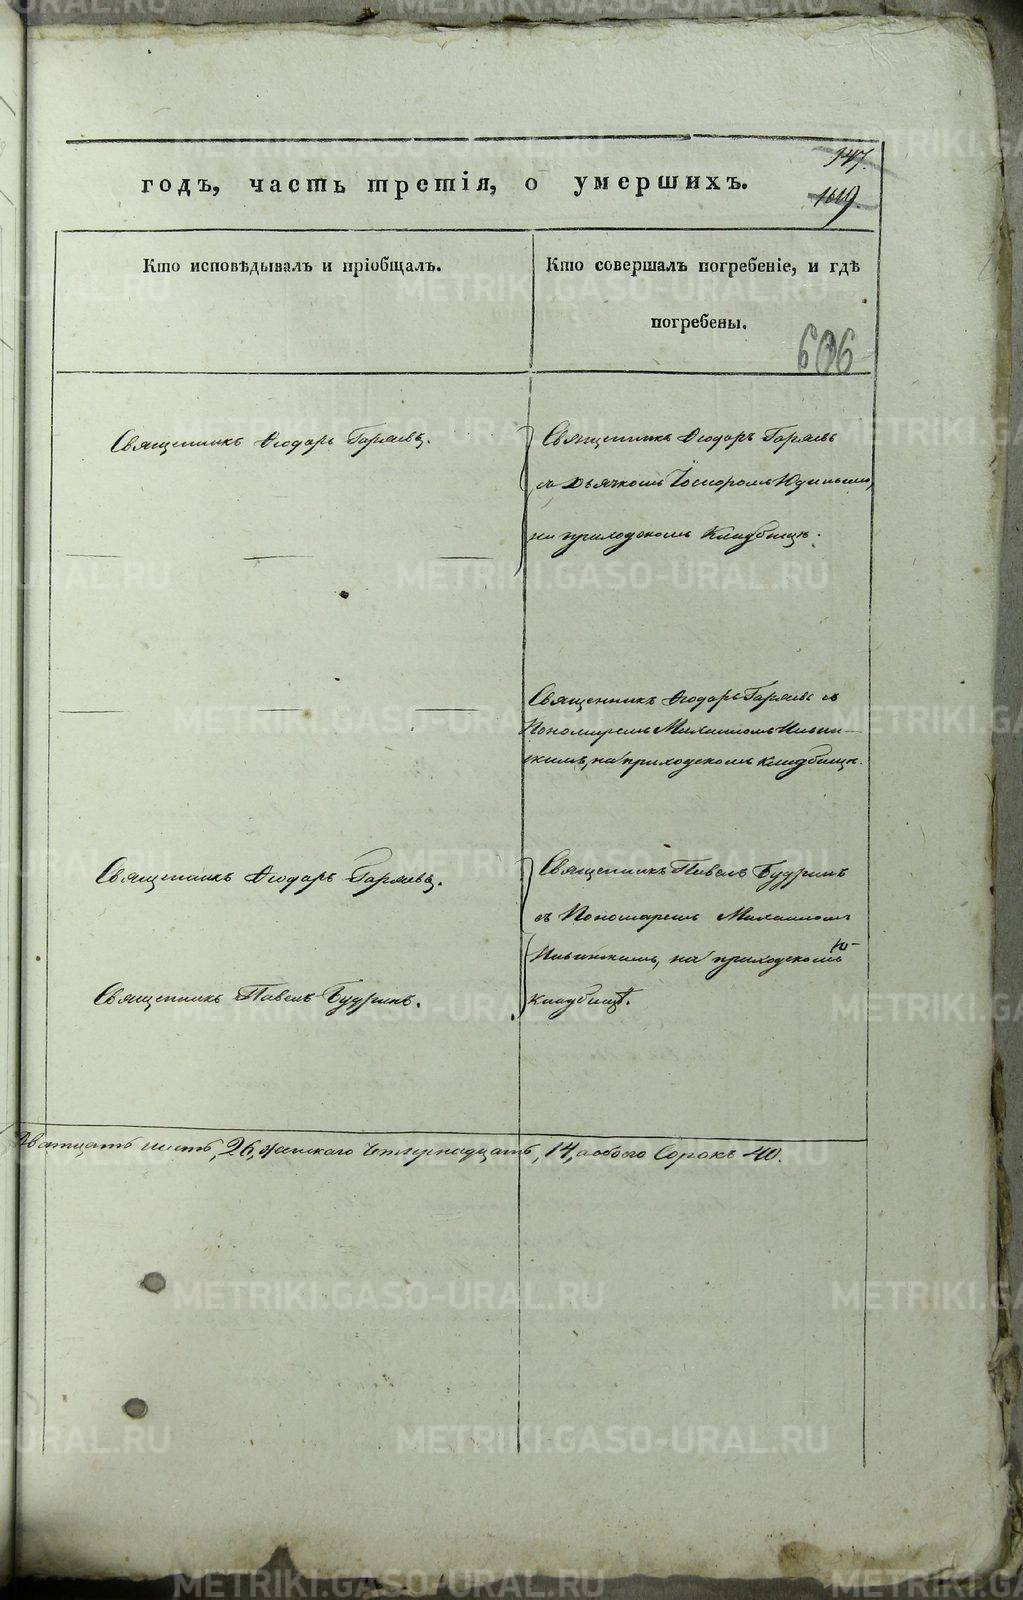 947.
годъ, часть третія, о умершихъ.
1019.
Кто исповѣдывалъ и пріобщалъ.
Кто совершалъ погребеніе, и гдѣ
погребены.
606
Священникъ Ѳеодоръ Гаряевъ.
Священникъ Ѳеодоръ Гаряевъ
съ Дьячкомъ Юдинымъ,
на приходскомъ Кладбищѣ.
Священникъ Ѳеодоръ Гаряевъ съ
Пономаремъ Михаиломъ Ильин-
скимъ, на приходскомъ кладбищѣ.
Священникъ Ѳеодоръ Гаряевъ.
Священникъ Павелъ Будринъ
съ Пономаремъ Михаиломъ
Ильинскимъ, на приходскомъ
Священникъ Павелъ Будринъ.
кладбищѣ.
Дватцать шесть, 26, женскаго Четырнадцать, 14, а обоего Сорокъ 40.
METRIKI.GASO-URAL.RU